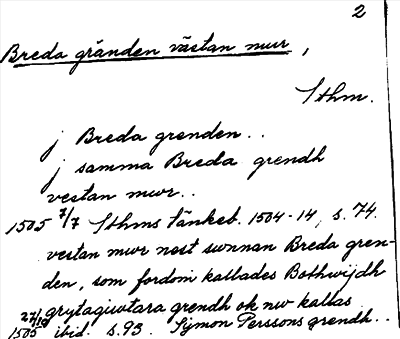 2
Breda gränden västan mur,
Sthm.
j Breda grenden..
j samma Breda grendh
vestan mwr..
1505 7/7 Sthms tänkeb. 1504-14, s. 74.
vestan mwr nest swnnan Breda gren-
den, som fordom kallades Bothwijdh
grytagiwtara grendh ok nw kallas
27/10 1505 ibid. s. 93. Symon Perssons grendh..